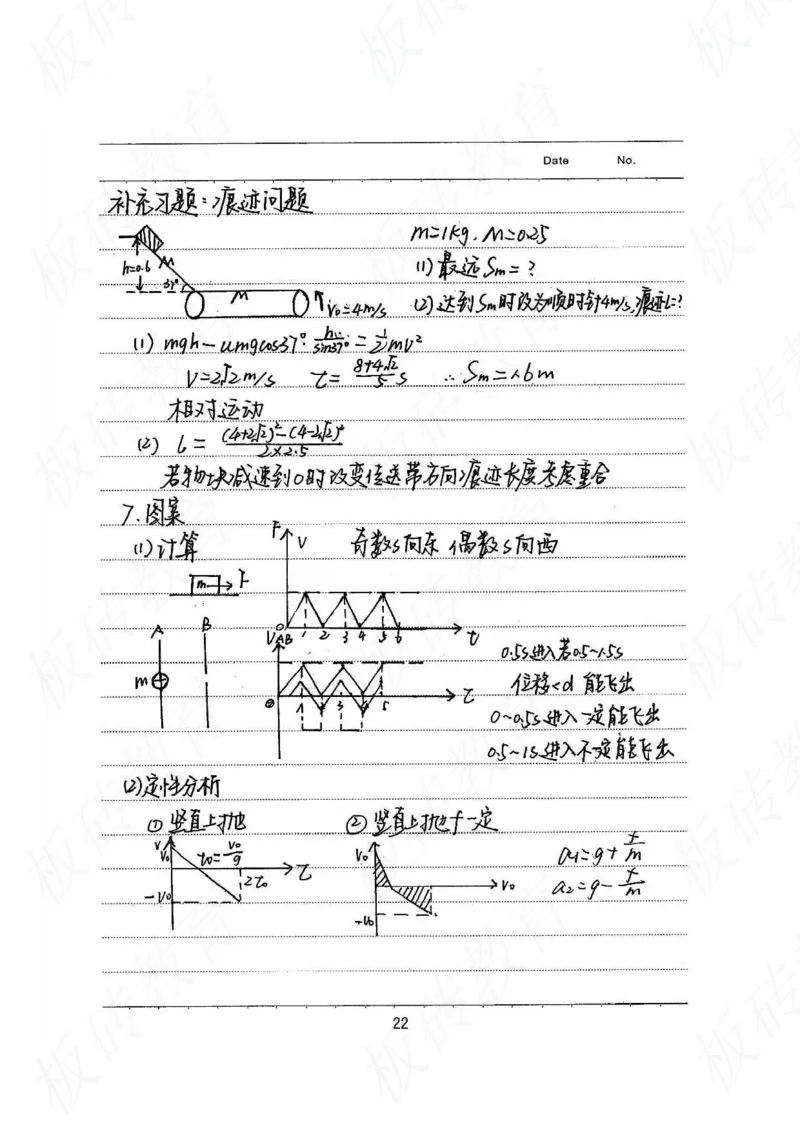 Date No.
补充习题:痕迹问题
m=1kg. M=0.25
h=0.6 M 37° M v₀=4m/s
(1) 最远 Sm=?
(2) 达到Sm时改为顺时针4m/s,痕迹L=?
(1) mgh-umgcos37°·h/sin37°=1/2mv²
V=2√2m/s t=(8+4√2)/5 s ∴Sm=1.6m
相对运动
(2) l=((4+2√2)²-(4-2√2)²)/(2×2.5)
若物块减速到0时改变传送带方向痕迹长度考虑重合
7.图案
(1)计算 F V 奇数s向东 偶数s向西
m F
O 1 2 3 4 5 6 t
A B VAB
m
1 2 3 4 5 t
0.5s进入若0.5~1.5s
位移<d 能飞出
0~0.5s进入一定能飞出
0.5~1s进入不一定能飞出
(2)定性分析
①竖直上抛 ②竖直上抛f一定
V V₀ t₀=V₀/g 2t₀ t -V₀
V₀ V₀ -V₀
a₁=g+f/m
a₂=g-f/m
22
板砖教育